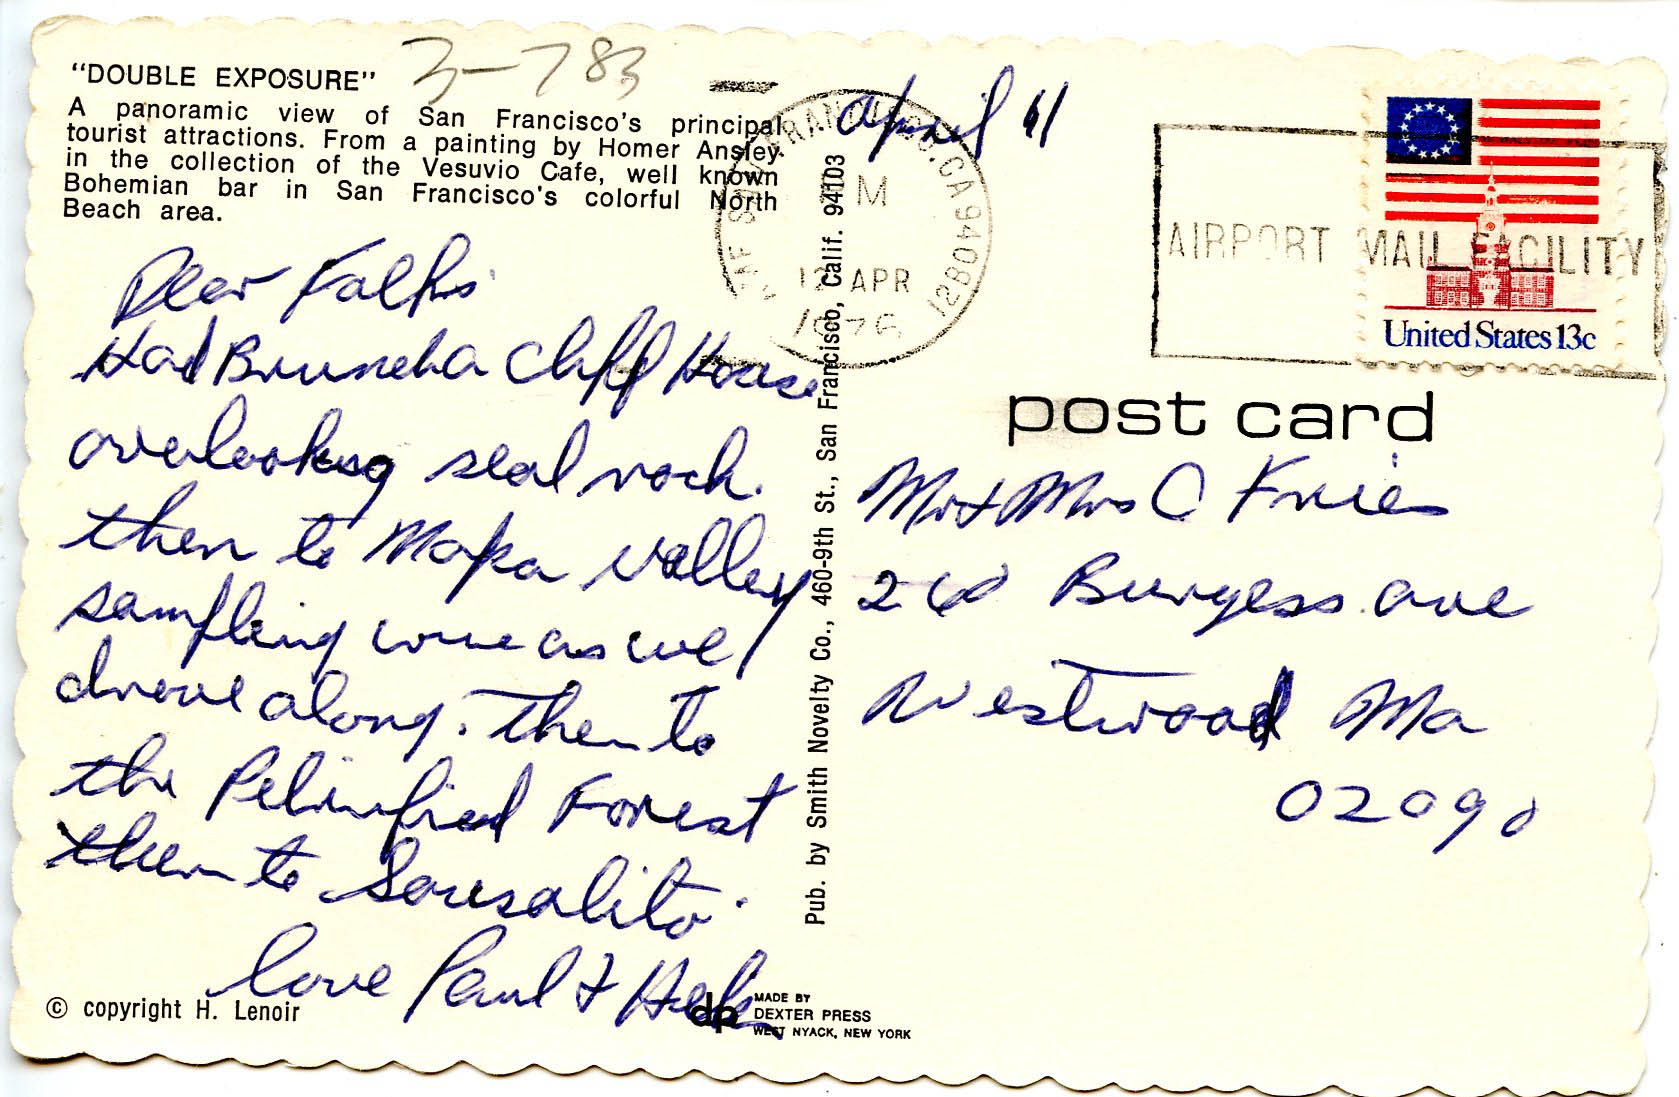 "DOUBLE EXPOSURE"
3-783
A panoramic view of San Francisco's principal
tourist attractions. From a painting by Homer Ansley
in the collection of the Vesuvio Cafe, well known
Bohemian bar in San Francisco's colorful North
Beach area.
April 11
AMF SAN FRANCISCO, CA 940
PM
12 APR
1976
AIRPORT MAIL FACILITY
United States 13c
Dear Folks
Had Brunch a Cliff House
overlooking seal rock.
then to Napa Valley
sampling wine as we
drove along. Then to
the Petrified Forest
then to Sousalito.
love Paul & Helen
post card
Mr & Mrs C Fries
260 Burgess ave
Westwood Ma
02090
Pub. by Smith Novelty Co., 460-9th St., San Francisco, Calif. 94103
© copyright H. Lenoir
dp
MADE BY
DEXTER PRESS
WEST NYACK, NEW YORK